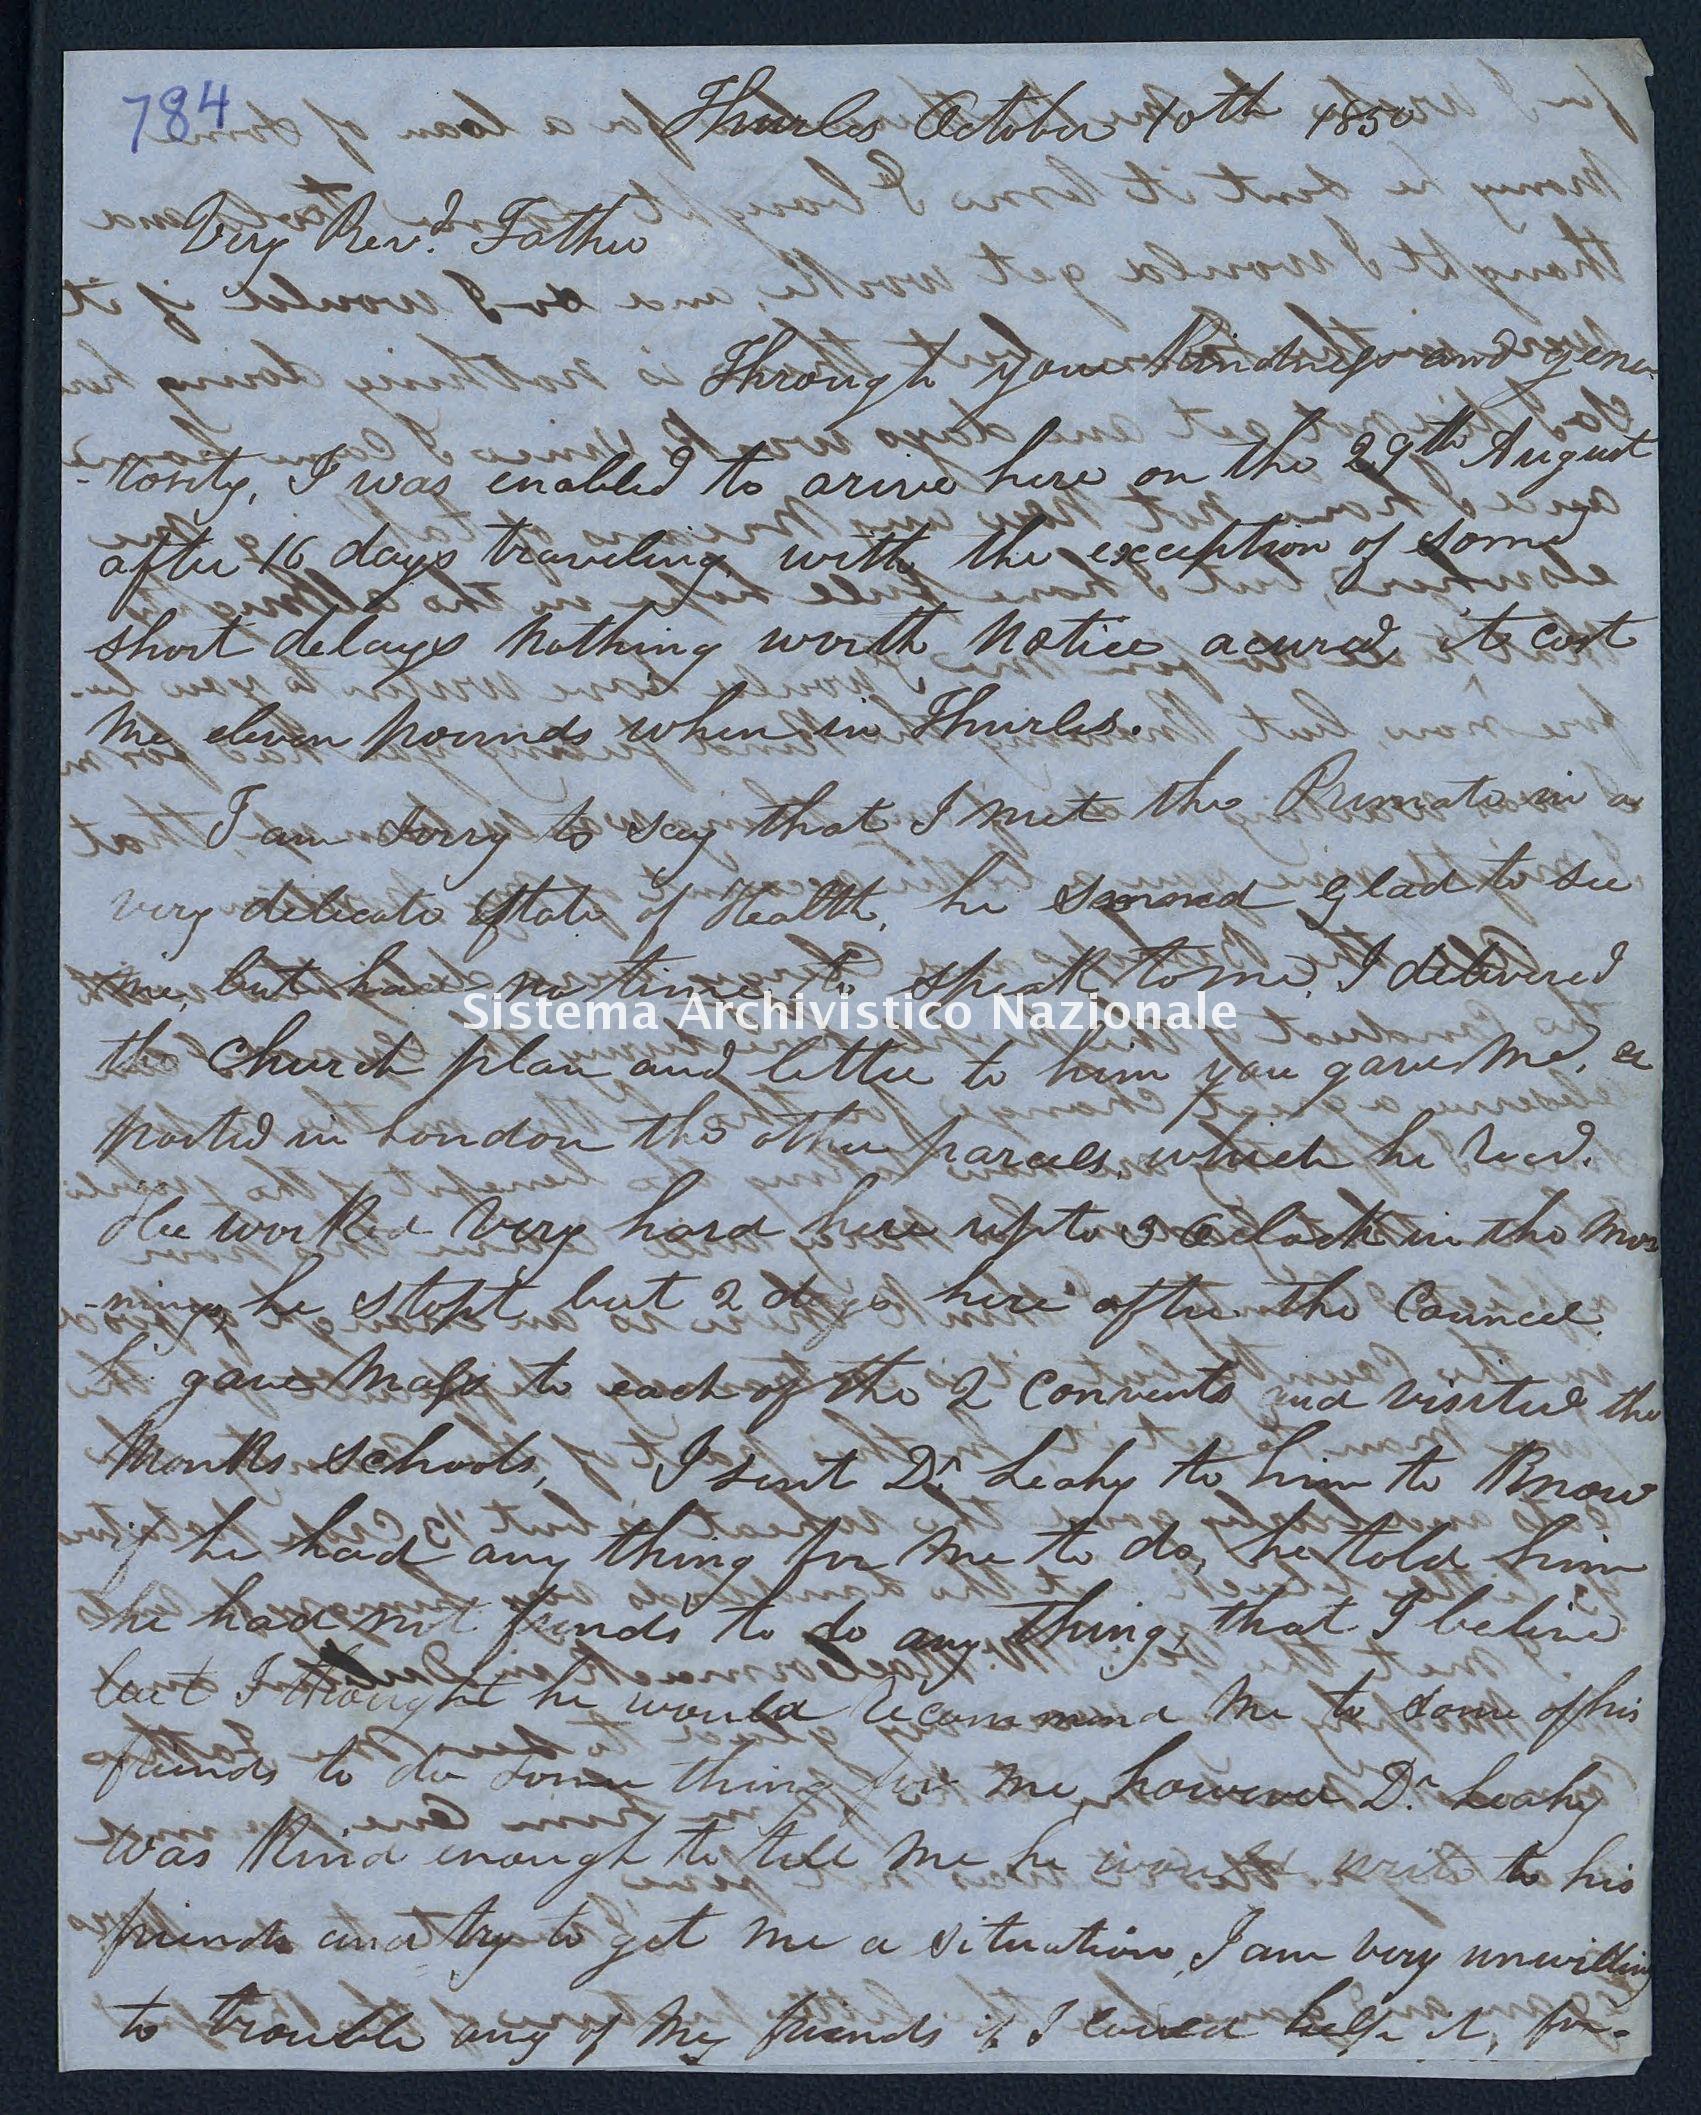 784
Thurles October 10th 1850
Very Revd. Father
Through your Kindness and gene-
-rosity, I was enabled to arive here on the 29th August
after 16 days traveling, with the exception of some
short delays nothing worth Notice acured, it cost
me eleven pounds when in Thurles.
I am sorry to say that I met the Primate in a
very delicate State of Health, he seemed glad to see
me, but had no time to speak to me, I delivered
the Church plan and letter to him you gave me, &
posted in London the other parcels, which he Recd.
He worked very hard here up to 3 O clock in the mor
-nings, he stopt but 2 days here after the Councel.
gave Mass to each of the 2 Convents and visited the
Monks schools, I sent Dr. Leahy to him to Know
if he had any thing for me to do, he told him
he had not funds to do any thing, that I belive
but I thought he would Recommend me to some of his
friends to do some thing for me, however Dr. Leahy
was Kind enough to tell me he would write to his
friends and try to get me a situation, I am very unwilling
to trouble any of my friends if I could help it, for-
Sistema Archivistico Nazionale